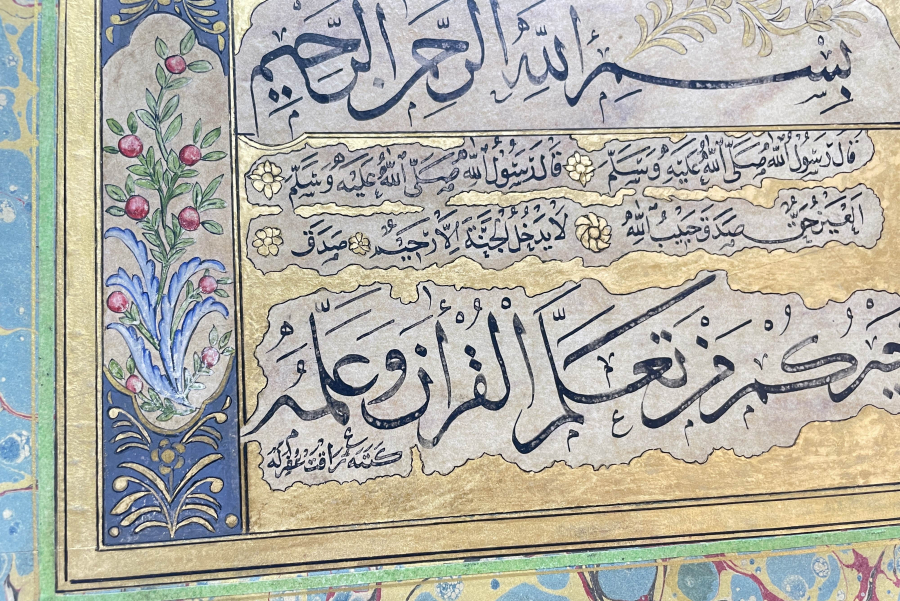 بسم الله الرحمن الرحيم
قال رسول الله صلى الله عليه وسلم قال رسول الله صلى الله عليه وسلم
العين حق صدق حبيب الله لا يدخل الجنة إلا رحيم صدق
خيركم من تعلم القرآن وعلمه
كتبه غفر له